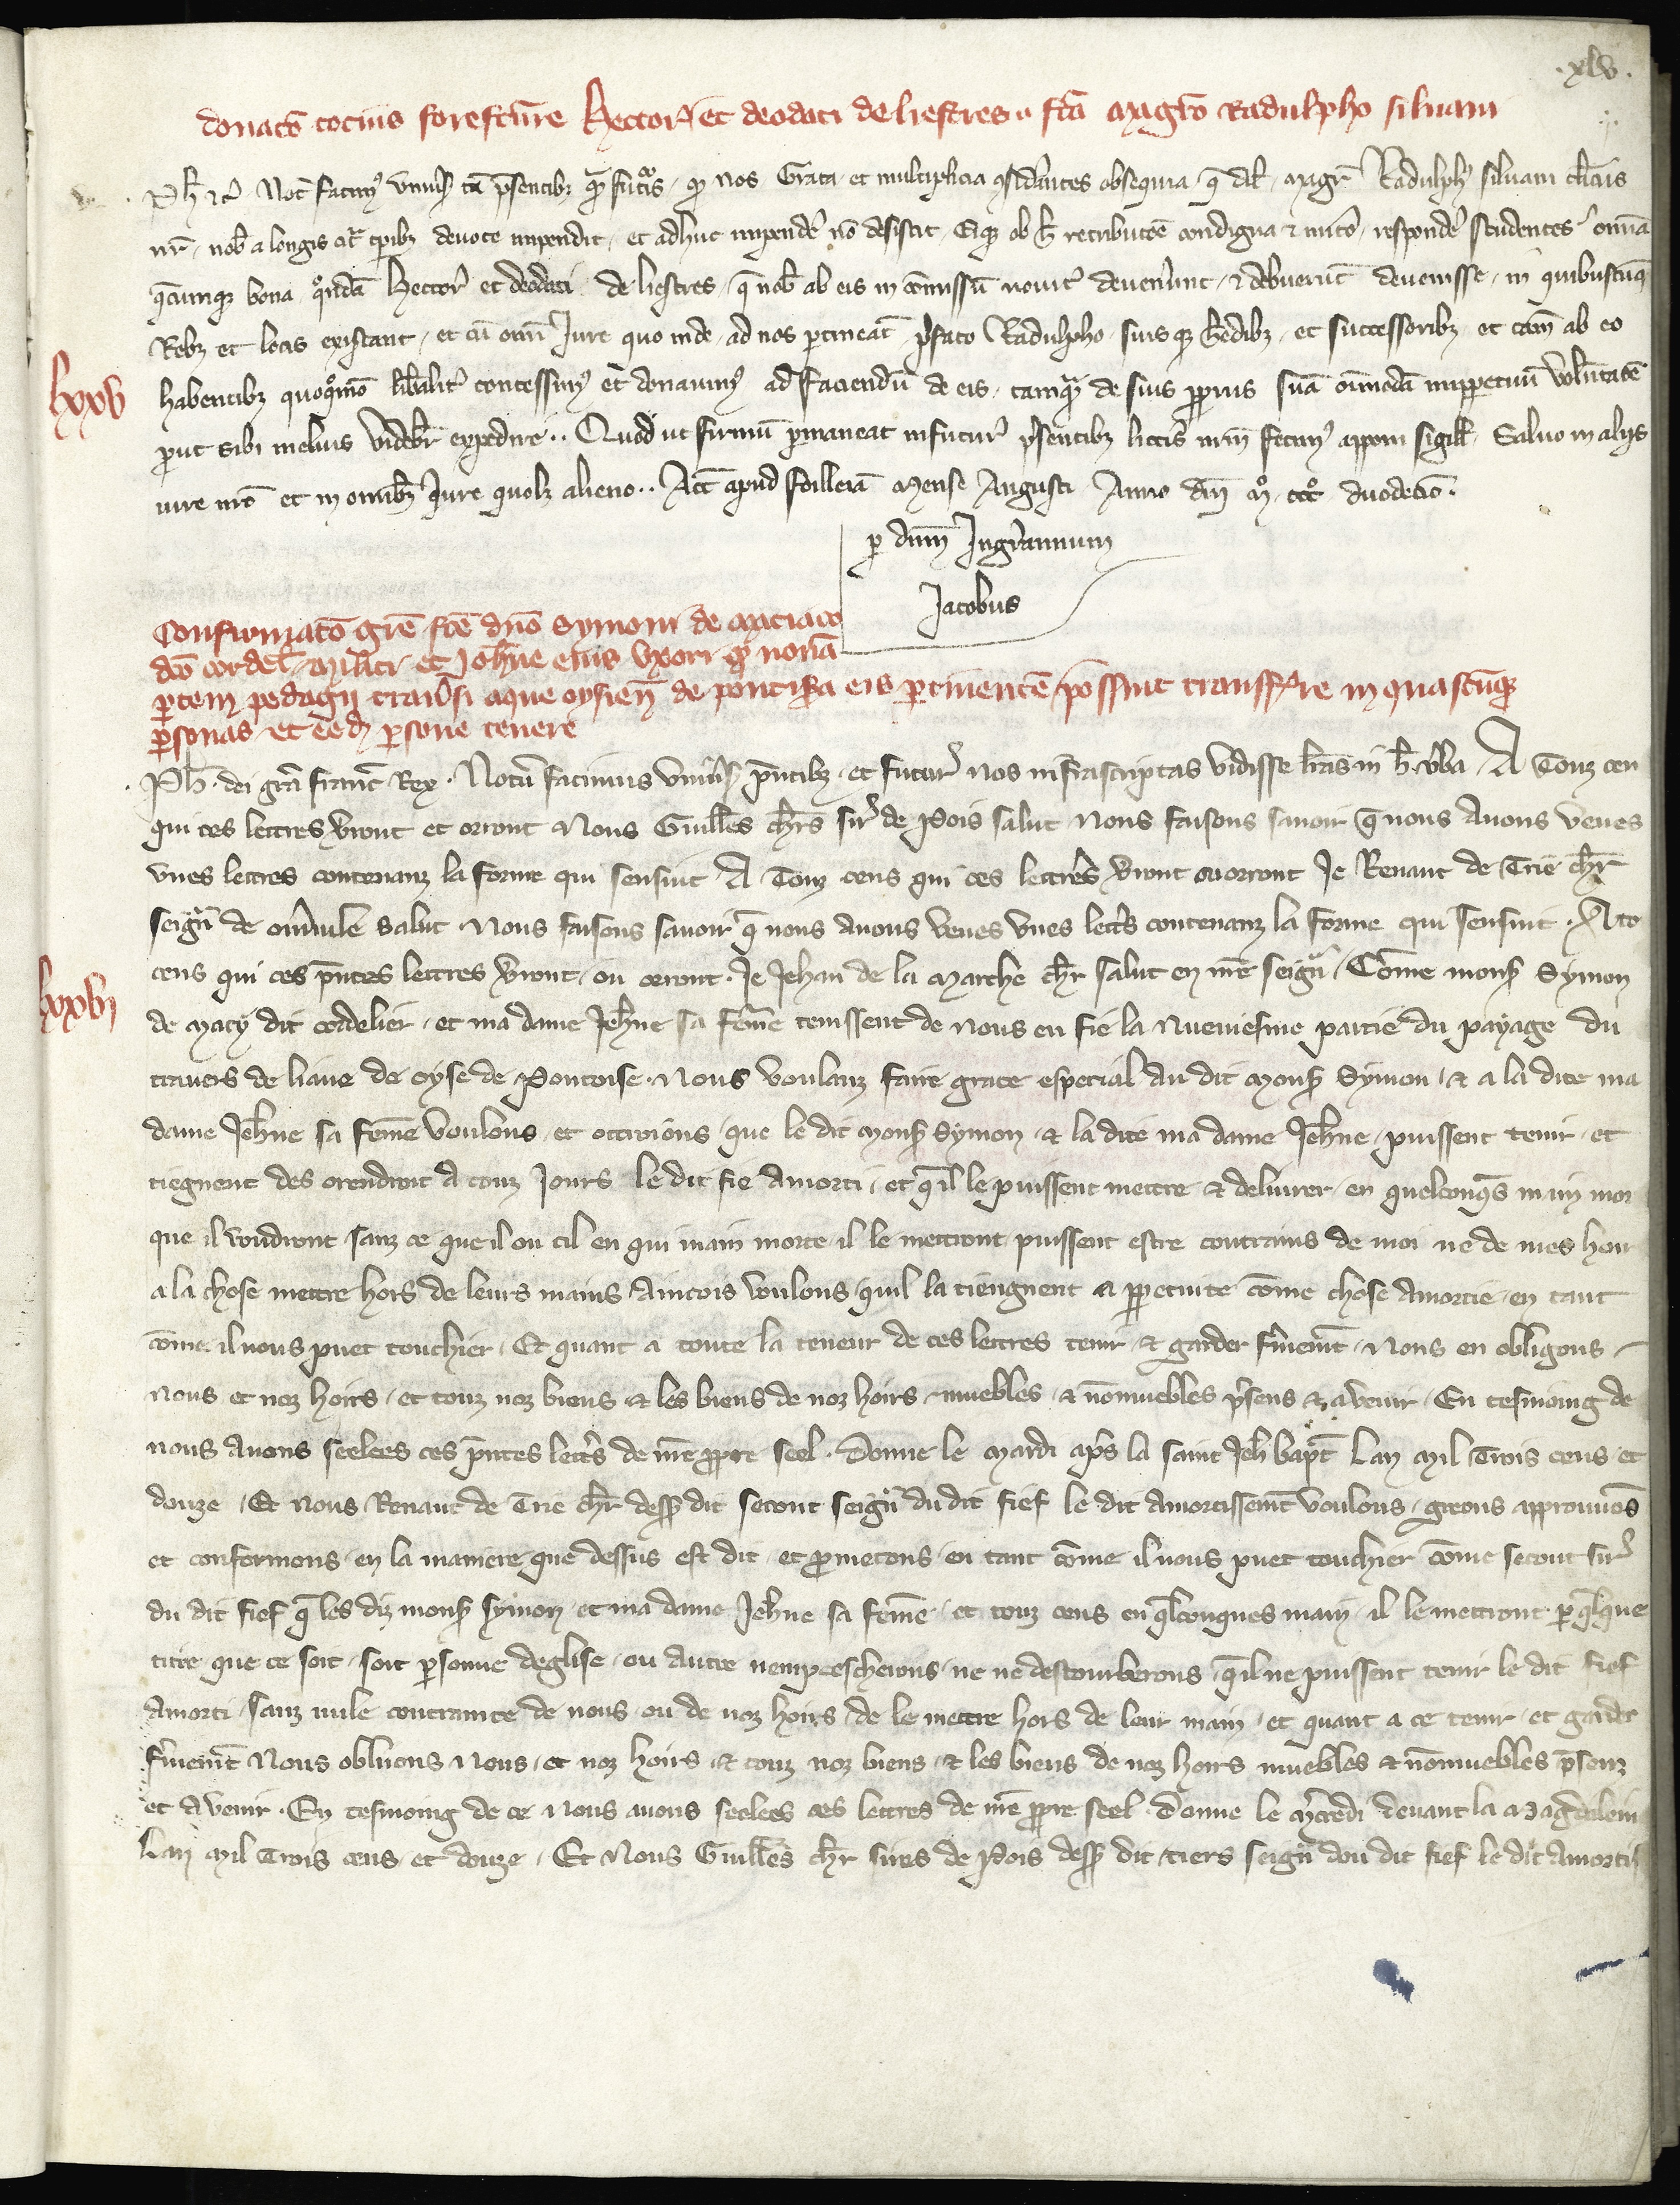 .xlv.
donac̄o tocius forefcture Hector̛ et deodati de liestres fc̄a magr̄o Radulpho siluani
Ph̄ &c̄ Not̄ facim⁹ vniu̓s̛ ta̅ p̄sentibȝ qᵃ̄ʒ futur̛ ꝙ nos Grata et multiplicia ꝯsid̓antes obsequia q̄ dil̄ magr̄ Radulph⁹ siluani cl̄icus
nr̄ nob̄ a longis cit̓ t̄pibȝ deuote impendit et adhuc impend̓e nō desistit Eiqꝫ ob h̄ retributōe condigna & mi̓to respond̓e studentes om̄ia
q̄cumqꝫ bona qᵒndā Hector̛ et deodati de liestres q̄ nob̄ ab eis in cōmissū nouit̓ deuen̓unt & debuerūt deuenisse in quibuscūqꝫ
Rebȝ et locis existant et cū om̄i Iure quo inde ad nos ptineāt p̓fato Radulpho suisqꝫ h̓edibȝ et successoribȝ et cām ab eo
lxxv
habentibȝ quoqᵒmō lib̓alit̓ concessim⁹ et donauim⁹ ad faciendū de eis tamqᵃ̄ de suis ꝓpriis suā oīmodā imppetuū volūtatē
ꝓut sibi melius videbr̄ expedire.. Quod ut firmū pmaneat infutur̛ p̓sentibȝ litt̓is nrm̄ fecim⁹ apponi sigill̄ Saluo in alijs
iure nrō et in omībȝ Iure quolȝ alieno.. Act̄ apud foilleiā mense Augusti Anno dn̄i mᵒ cccᵒ duodec̄io.
p dnm̄ Ingr̓annum
Jacobus
Confirmatō grē fc̄e dn̄o Symoni de maciaco
dc̄o cordel̄ militi et Ioh̄ne eius vxori ꝙ nonā
ptem pedagij trau̓si aque oysień de pontis̛ra eis ptinentē possint transffr̄e in quascūqꝫ
psonas et eed̄ psone tenere
Ph̄ dei grā franc̄ Rex. Notū facimus vniu̓s̛ p̄ntibȝ et futur̛ nos infrascriptas vidisse lrās in h̄ u̓ba A Touz ceu
qui ces lettres v̓ront et orront Nous Guill̄es chr̄s sir̓ de Pois salut Nous faisons sauoir q̄ nous Auons veues
vnes lettres contenanz la forme qui sensuit A Touz ceus qui ces lettres v̓ront ou orront Je Renaut de Trie chr̄
seignʳ de om̄uile Salut Nous faisons sauoir q̄ nous auons veues vnes lett̓s contenanz la forme qui sensuit. A to
lxxvi
ceus qui ces p̄ntes lettres v̓ront ou orront. Je Jehan de la Marche chr̄ salut en nr̄e seignʳ Cōme mons̛ Symon
de Macy dit cordelier et ma dame Jeh̄ne sa feme tenissent de nous en fie la Nueuiesme partie du payage du
trauers de liaue de oyse de Pontoise. Nous voulanz faire grace especial au dit Mons̛ Symon & a la dite ma
dame Jeh̄ne sa feme voulons et ottroions que le dit mons̛ Symon & la dite ma dame Jeh̄ne puissent tenir et
tiegnent des orendroit A touz Jours le dit fie Amorti et q̄il le puissent mettre & deliurer en quelconqs main mor
que il voudront sanz ce que il ou cil en qui main morte il le mettront puissent estre contrains de moi ne de mes hoir
a la chose mettre hors de leurs mains Aincois voulons quil la tiengnent a ppetuite cōme chose Amortie en tant
cōme il nous puet touchier. Et quant a toute la teneur de ces lettres tenir & garder f̓mem̄t Nous en obligons
nous et noz hoirs et touz noz biens & les biens de noz hoirs muebles & nōmuebles p̓sens & avenir. En tesmoing de
nous auons seelees ces p̄ntes lett̓s de nr̄e ꝓpre seel. Donne le Mardi ap̓s la saint Jeh̄ bapt̄ Lan Mil Trois cens et
douze. Et nous Renaut de Trie chr̄ dess̛ dit secont seignʳ du dit fief le dit Amortissem̄t voulons greons approuuōs
et confermons en la maniere que dessus est dit et ꝓmetons en tant cōme il nous puet touchier cōme secont sir̓
du dit fief q̄ les diz mons̛ symon et ma dame Jeh̄ne sa feme et touz ceus en q̄lconques main il le mettront p q̄lque
titre que ce soit soit psonne deglise ou autre nempeeschetons ne ne destourberons q̄il ne puissent tenir le dit fief
amorti sanz nule contrainte de nous ou de noz hoirs de le mettre hors de leur main et quant a ce tenir et garder
f̓mem̄t Nous obluons Nous et noz hoirs & touz noz biens & les biens de noz hoirs muebles & nōmuebles p̄senz
et Avenir. En tesmoing de ce Nous auons seelees ces lettres de nr̄e ꝓpre seel. Donne le m̓credi deuant la Magdelein
Lan Mil Trois cens et douze. Et Nous Guill̄es chr̄ sires de Pois dess̛ dit tiers seignʳ dou dit fief le dit Amortiss